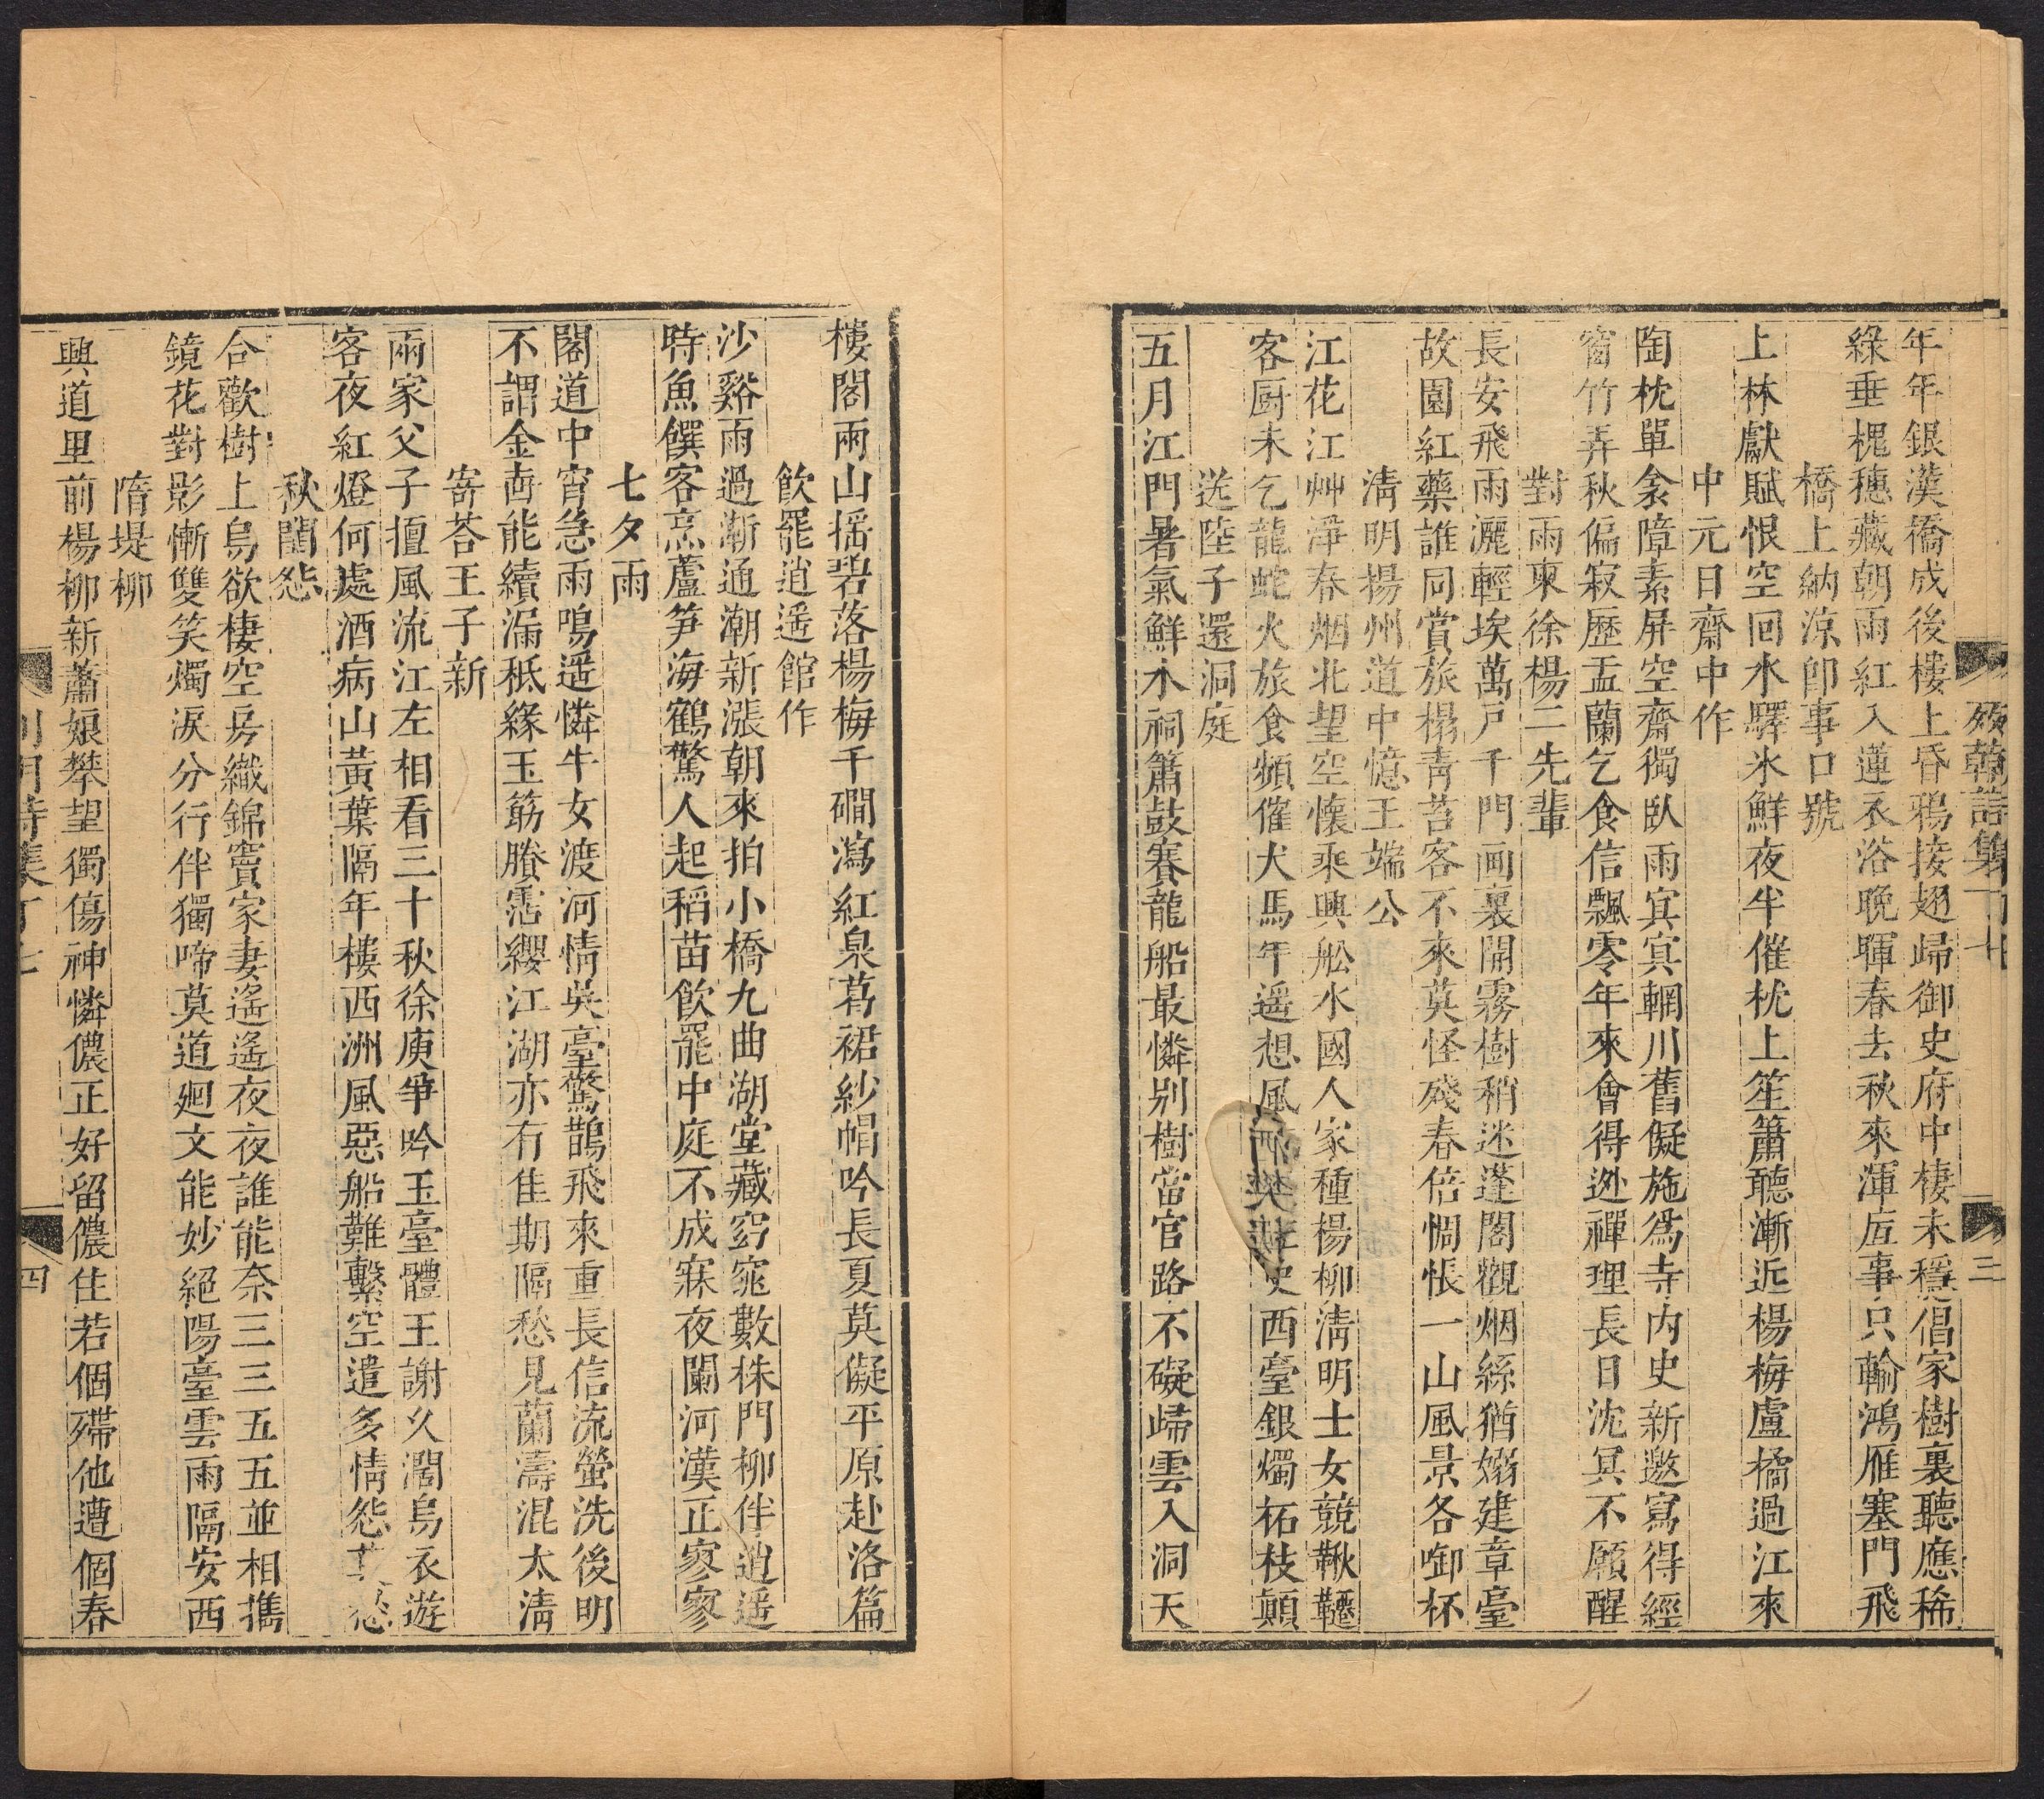 年年銀漢橋成後樓上昏鴉接翅歸御史府中棲未穩倡家樹裏聽應稀
綠垂槐穗藏朝雨紅入蓮衣浴晚暉春去秋來渾底事只輸鴻雁塞門飛
橋上納涼卽事口號
上林獻賦恨空回水驛氷鮮夜半催枕上笙簫聽漸近楊梅盧橘過江來
中元日齋中作
陶枕單衾障素屏空齋獨臥雨冥冥輞川舊儗施爲寺內史新邀寫得經
窗竹弄秋偏寂歷盂蘭乞食信飄零年來會得逃禪理長日沈冥不願醒
對雨柬徐楊二先輩
長安飛雨灑輕埃萬戸千門画裏開霧樹稍迷蓬閣觀烟絲猶嫋建章臺
故園紅藥誰同賞旅榻青苔客不來莫怪殘春倍惆悵一山風景各啣杯
淸明揚州道中憶王端公
江花江艸淨春烟北望空懷乘興舩水國人家種楊柳淸明士女競鞦韆
客厨未乞龍蛇火旅食頻催犬馬年遥想風 史西臺銀燭柘枝顚
送陸子還洞庭
五月江門暑氣鮮水祠簫鼓賽龍船最憐别樹當官路不礙歸雲入洞天
三
樓閣兩山揺碧落楊梅千磵瀉紅泉葛裙紗帽吟長夏莫儗平原赴洛篇
飮罷逍遥館作
沙谿雨過漸通潮新漲朝來拍小橋九曲湖堂藏窈窕數株門柳伴逍遥
時魚饌客烹蘆笋海鶴驚人起稻苗飮罷中庭不成寐夜闌河漢正寥寥
七夕雨
閣道中宵急雨鳴遥憐牛女渡河情吳臺驚鵲飛來重長信流螢洗後明
不謂金壺能續漏秪緣玉筯賸霑纓江湖亦有佳期隔愁見蘭濤混太淸
寄荅王子新
兩家父子擅風流江左相看三十秋徐庾爭吟玉臺體王謝久濶烏衣遊
客夜紅燈何處酒病山黃葉隔年樓西洲風惡船難繫空遣多情怨莫愁
秋閨怨
合歡樹上烏欲棲空房織錦竇家妻遙遙夜夜誰能奈三三五五並相攜
鏡花對影慚雙笑燭淚分行伴獨啼莫道廻文能妙絕陽臺雲雨隔安西
隋堤柳
興道里前楊柳新蕭娘攀望獨傷神憐儂正好留儂住若個殢他遭個春
四